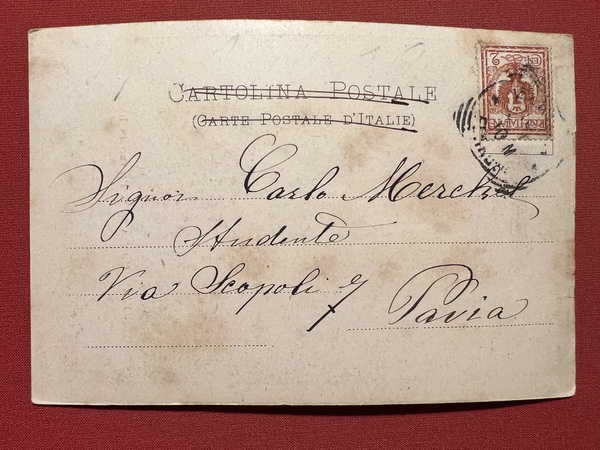 CARTOLINA POSTALE
(CARTE POSTALE D'ITALIE)
Signor Carlo Merckel
Studente
Via Scopoli 7
Pavia